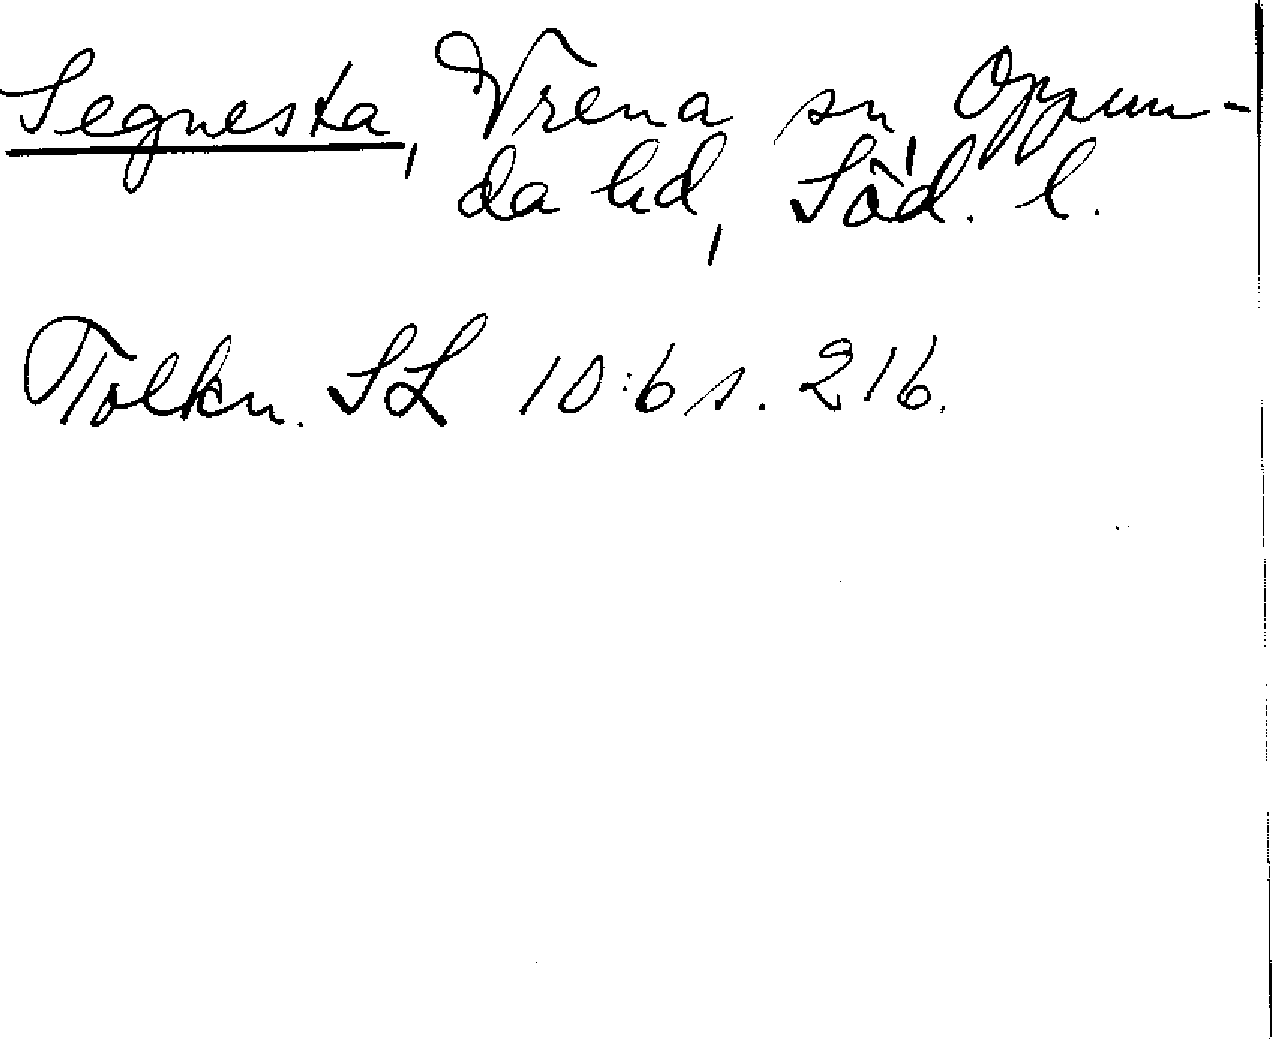 Segnesta, Vrena sn, Oppun-
da hd, Söd. l.
Tolkn. SL 10:6 s. 216.